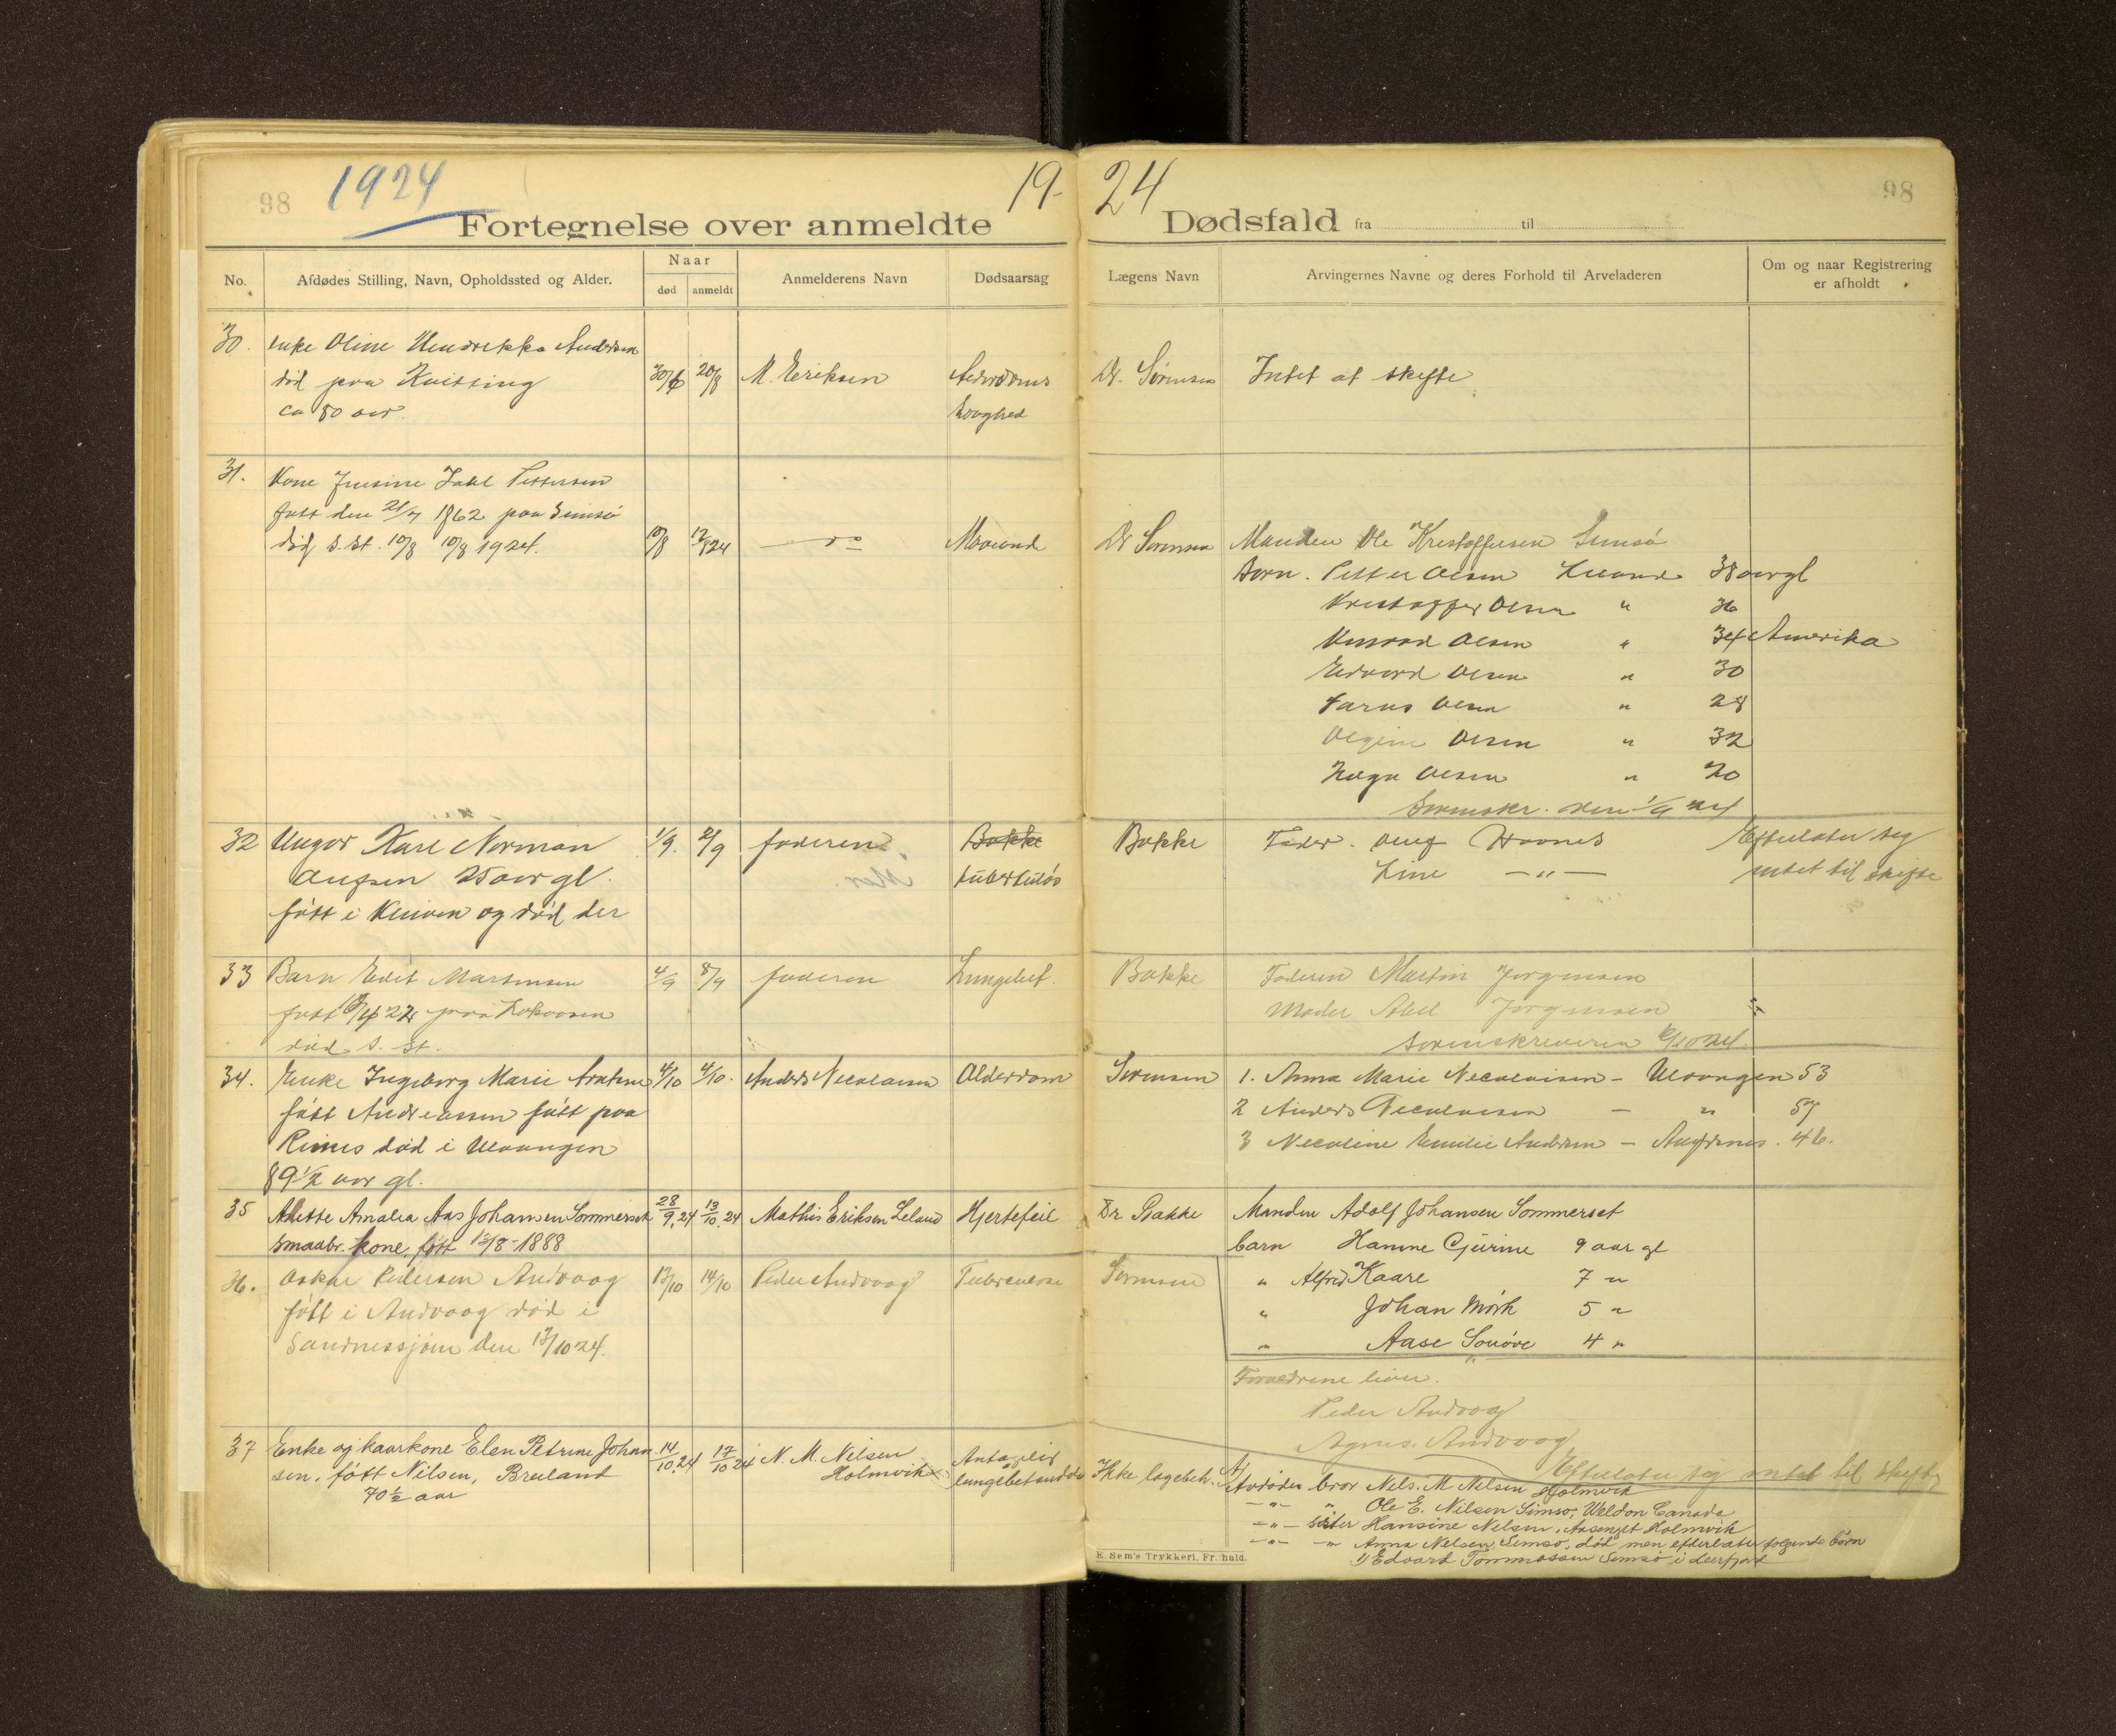 98 1924 19-
Fortegnelse over anmeldte
No. Afdødes Stilling, Navn, Opholdssted og Alder. Naar død anmeldt Anmelderens Navn Dødsaarsag
30. Enke Oline Hendrikka Andersen
død paa 30/6 20/8 M. Eriksen Alderdoms
ca 80 aar. svaghed
31. Kone Petternsen
født den 21/7 1862 paa Simsø
død s. st. 10/8 10/8 1924. 10/8 12/8 24 — do — Mavond
32 Ungar Karl Norman 1/9. 2/9 faderen Bakke
25 aar gl. tuberkulös
født i og død der
33 Barn Edit Martinsen 4/9 8/9 faderen Lungebet.
født 22 paa
død s. st.
34. Enke Ingeborg Marie 4/10 4/10. Anders Nicolaisen Alderdom
født Andreassen født paa
død i Ulvangen
89 1/2 aar gl.
35 Alette Amalia Aas Johansen Sommerset 28/9.24 13/10.24 Mathis Eriksen Leland Hjertefeil
smaabr. kone, født 1888
36. Oskar Pedersen Andvaag 13/10 14/10 Peder Andvaag Tuberculose
født i Andvaag død i
Sandnessjøen den 13/10 24.
37 Enke og kaarkone Elen Petrine Johan 14/10.24 17/10 24 N. M. Nilsen Antagelig
sen, født Nilsen, Breiland Holmvik lungebetændelse
70 1/2 aar
24 98
Dødsfald fra til
Lægens Navn Arvingernes Navne og deres Forhold til Arveladeren Om og naar Registrering
er afholdt
Dr. Sørensen Intet at skifte
Dr Sørensen Manden Ole Kristoffersen Simsø
Børn. Petter Olsen 38 aar gl
Kristoffer Olsen " 36
Konrad Olsen " 34 Amerika
Edvard Olsen " 30
Olsen " 28
Olsen " 32
Olsen " 20
Sorenskr. den 1/9 24
Bakke Fader. Hovnes Efterlater sig
Line —"— intet til skifte
Bakke Faderen Martin Jørgensen
Moder Jørgensen
Sorenskriveren 10 24.
Sørensen 1. Anna Marie Nicolaisen - Ulvangen 53
2 Anders Nicolaisen — " 57
3 Nicoline Emilie Andersen - 46.
Dr Bakke Manden Adolf Johansen Sommerset
barn Hanne Gjurine 9 aar gl
" Alfred Kaare 7 "
Sørensen " Johan Mörk 5 "
" Aase Sonöve 4 "
Forældrene liver.
Peder Andvaag
Agnes. Andvaag
Efterlater sig intet til skifte
Ikke lægebeh. Avdødes bror Nels. M Nelsen Holmvik
—"— " Ole E. Nilsen Simsø, Weldon Canada
—"— söster Hansine Nelsen, Holmvik
—"— " Anna Nelsen Simsø, død men efterlater følgende børn
1) Edvard Tommassen Simsø i Leirfjord
E. Sem's Trykkeri, Fr.hald.